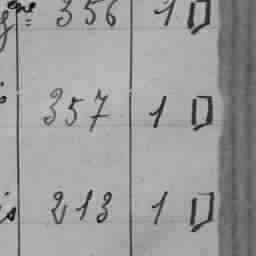 356 1
357 1
213 1